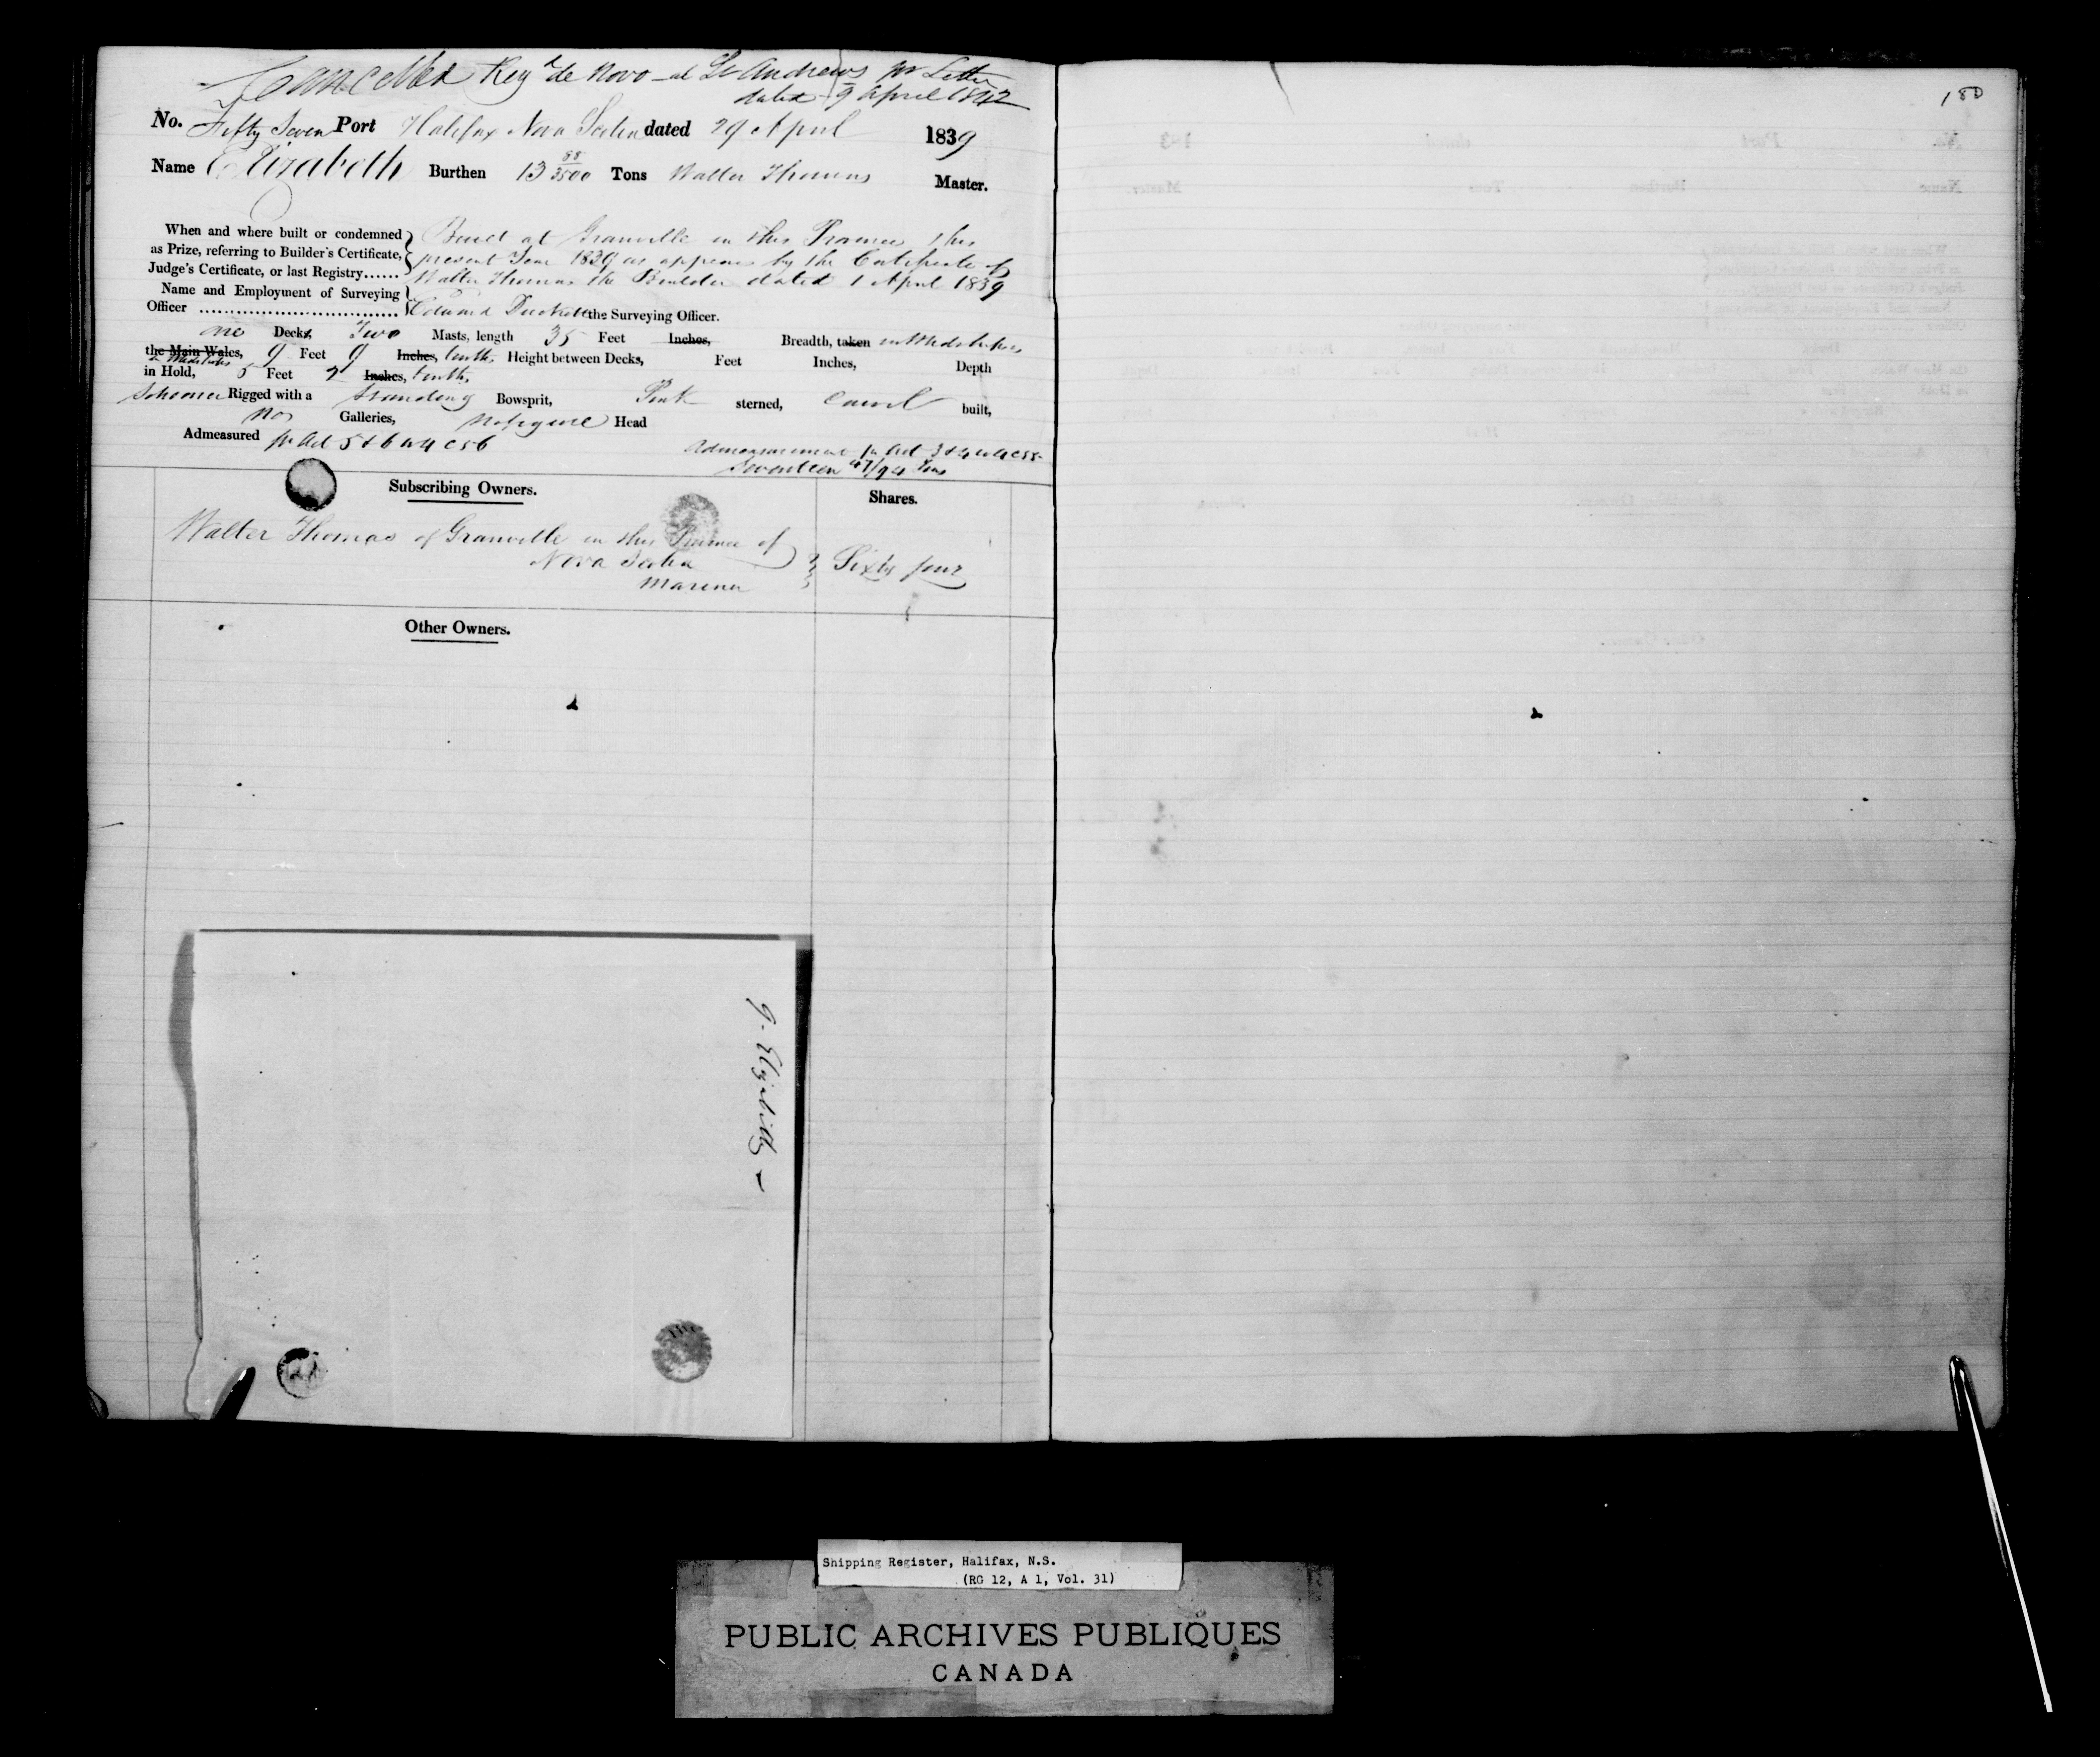 Cancelled Regd de Novo at St Andrews pr Letter
dated 9 April 1842
180
No. Fifty Seven Port Halifax Nova Scotia dated 29 April 1839
Name Elizabeth Burthen 13 88/3500 Tons Walter Thomas Master.
When and where built or condemned as Prize, referring to Builder's Certificate, Judge's Certificate, or last Registry......
Built at Granville in this Province this
present Year 1839 as appears by the Certificate of
Walter Thomas the Builder dated 1 April 1839
Name and Employment of Surveying Officer
Edward Duckett the Surveying Officer.
one Decks Two Masts, length 35 Feet Inches, Breadth, taken in Midships
the Main Wales, 9 Feet 9 Inches, tenths, Height between Decks, Feet Inches, Depth
in Midships
in Hold, 5 Feet 7 Inches, tenths,
Schooner Rigged with a Standing Bowsprit, Pink sterned, Carvel built,
No Galleries, no figure Head
Admeasured pr Act 5 & 6 W 4 C 56
Admeasurement pr Act 3 & 4 W 4 C 55
Seventeen 47/94 Tons
Subscribing Owners. Shares.
Walter Thomas of Granville in this Province of
Nova Scotia
Mariner
Sixty four
Other Owners.
9. Elizabeth –
Shipping Register, Halifax, N.S.
(RG 12, A 1, Vol. 31)
PUBLIC ARCHIVES PUBLIQUES
CANADA